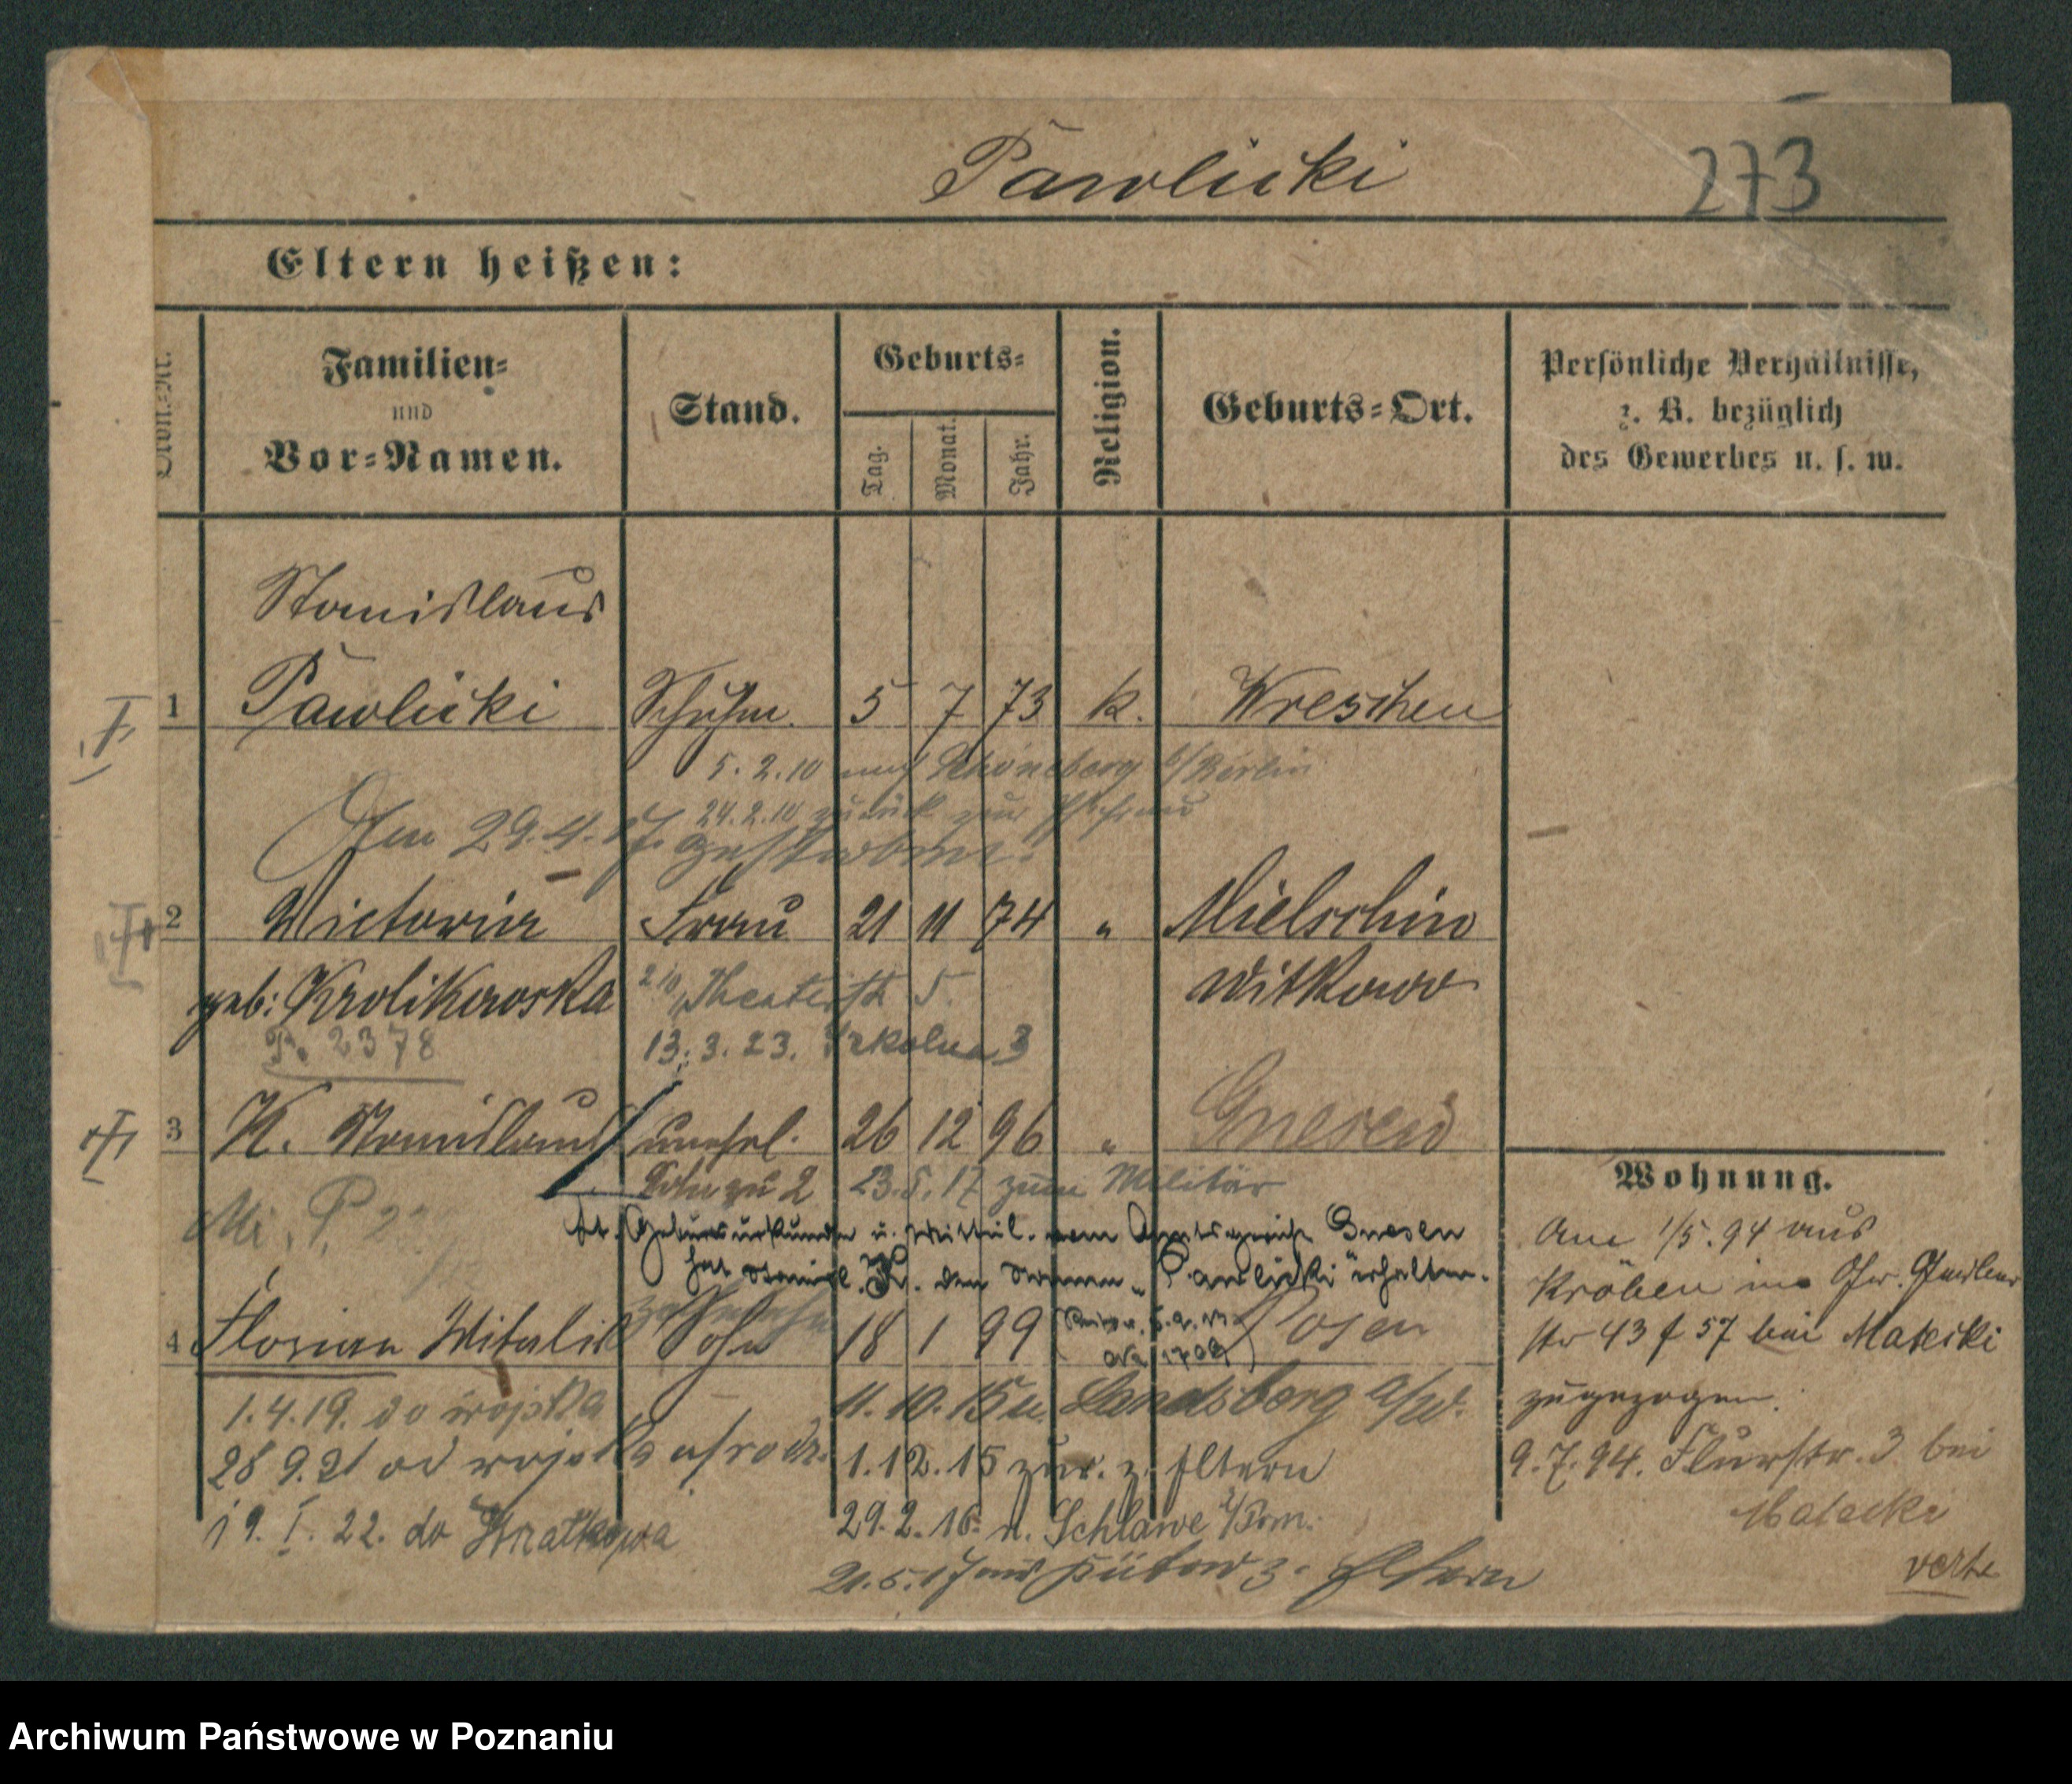 Pawlicki 273
Eltern heißen:
Ordn.-Nr.
Familien-
und
Vor-Namen.
Stand.
Geburts-
Tag. Monat. Jahr.
Religion.
Geburts-Ort.
Persönliche Verhältnisse,
z. B. bezüglich
des Gewerbes u. s. w.
Stanislaus
1 Pawlicki Schuhm. 5 7 73 k. Wreschen
5.2.10 nach Schöneberg b/Berlin
24.2.10 zurück zur
Am 29.4. gestorben.
2 Victoria Frau 21 11 74 " Mielschin
geb: Krolikowska Witkowo
Theaterstr 5.
P. 2378 13.3.23. Szkolna 3
3 K. Stanislaus unehel. 26 12 96 " Gnesen
Sohn zu 2 23.5.17 zum Militär
Geburtsurkunde u. Mitteil. vom Amtsgericht Gnesen
hat Stanisl. K. den Namen „Pawlicki" erhalten.
4 Florian Witalis Sohn 18 1 99 Posen
1.4.19. do wojska 11.10.15 n. Landsberg a/W.
28 9.21 od wojska 1.12.15 zur. z. Eltern
19. I. 22. do 29.2.16. n. Schlawe i/Pom.
21.5.17 aus z. Eltern
Wohnung.
Am 1/5.94 aus
Kröben
str 43 f 57 bei Matecki
zugezogen.
9.7.94. Flurstr. 3 bei
Matecki
verte
Archiwum Państwowe w Poznaniu